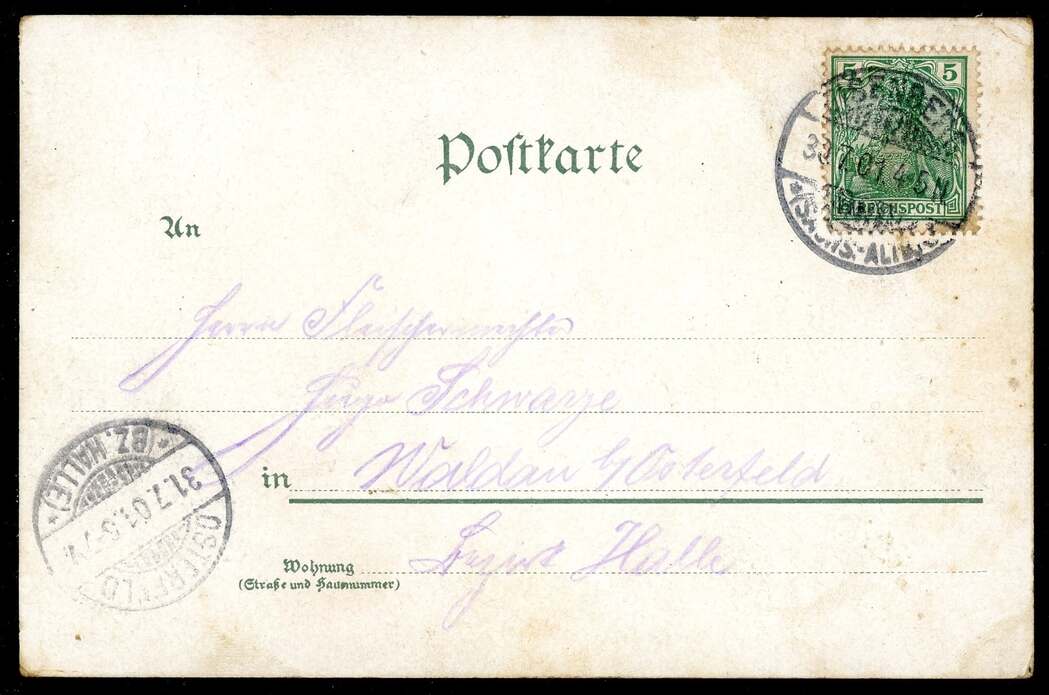 5 5
30.7.01.4-5N
REICHSPOST
(SACHS.-ALTBG.)
Postkarte
An
Herrn Fleischermeister
Hugo Schwarze
in Waldau b/Osterfeld
Bezirk Halle
Wohnung
(Straße und Hausnummer)
OSTERFELD
31.7.01.
* (BZ. HALLE) *